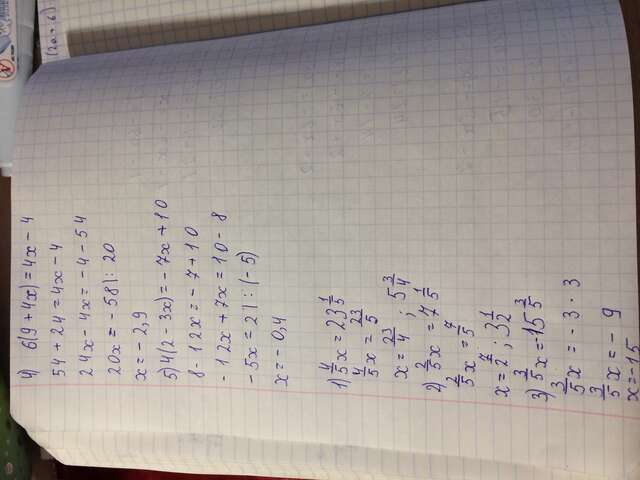 4) 6(9+4x)=4x-4
54+24=4x-4
24x-4x=-4-54
20x=-58|:20
x=-2,9
5) 4(2-3x)=-7x+10
8-12x=-7+10
-12x+7x=10-8
-5x=2|:(-5)
x=-0,4
1) 4/5 x = 23 1/5
4/5 x = 23/5
x = 23/4 ; 5 3/4
2) 2/5 x = 7 1/5
2/5 x = 7/5
x = 7/2 ; 3 1/2
3) 3/5 x = -15 3/5
3/5 x = -3·3
3/5 x = -9
x=-15
(2a+6)